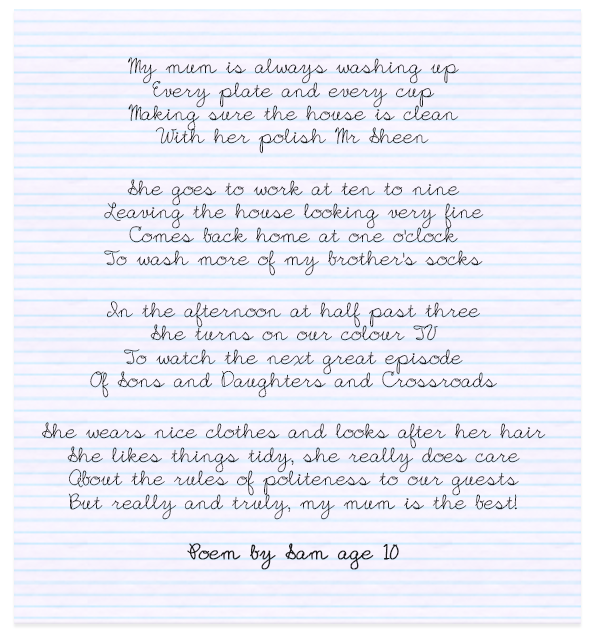 My mum is always washing up
Every plate and every cup
Making sure the house is clean
With her polish Mr Sheen
She goes to work at ten to nine
Leaving the house looking very fine
Comes back home at one o'clock
To wash more of my brother's socks
In the afternoon at half past three
She turns on our colour TV
To watch the next great episode
Of Sons and Daughters and Crossroads
She wears nice clothes and looks after her hair
She likes things tidy, she really does care
About the rules of politeness to our guests
But really and truly, my mum is the best!
Poem by Sam age 10